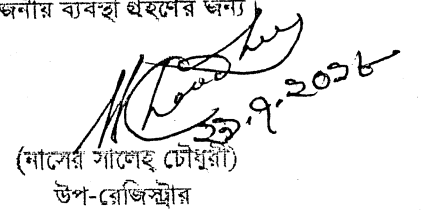 জনীয় ব্যবস্থা গ্রহণের জন্য
(নাসের সালেহ চৌধুরী)
উপ-রেজিস্ট্রার